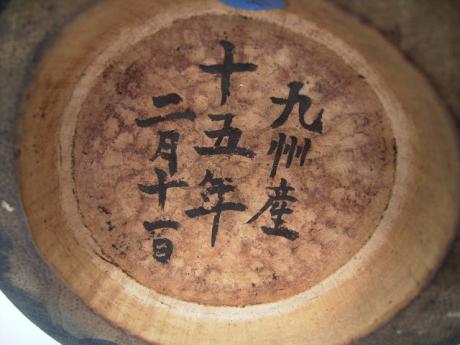 九州産
十五年
二月十一日